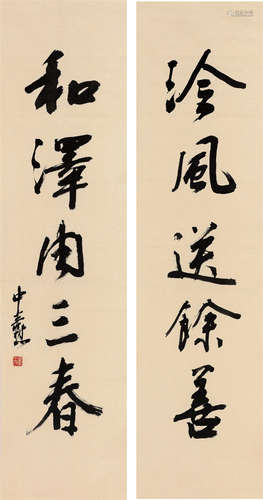 泠風送餘善
和澤周三春